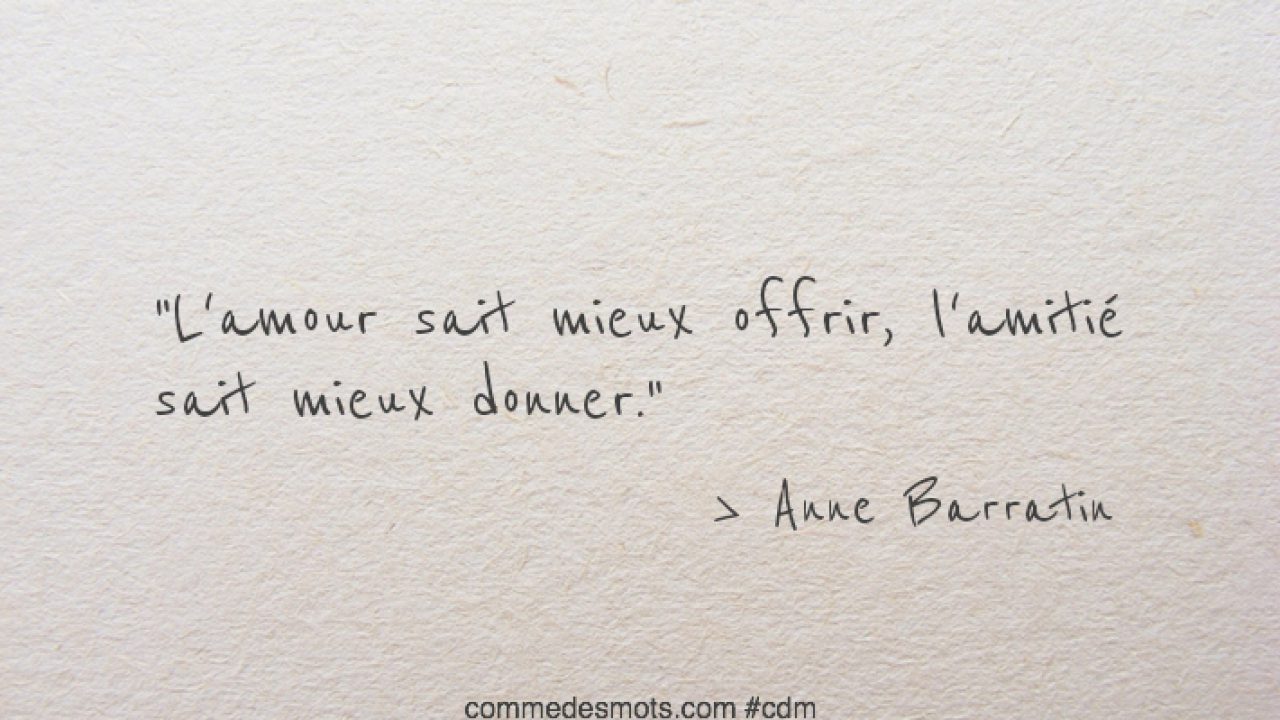 "L'amour sait mieux offrir, l'amitié
sait mieux donner."
> Anne Barratin
commedesmots.com #cdm